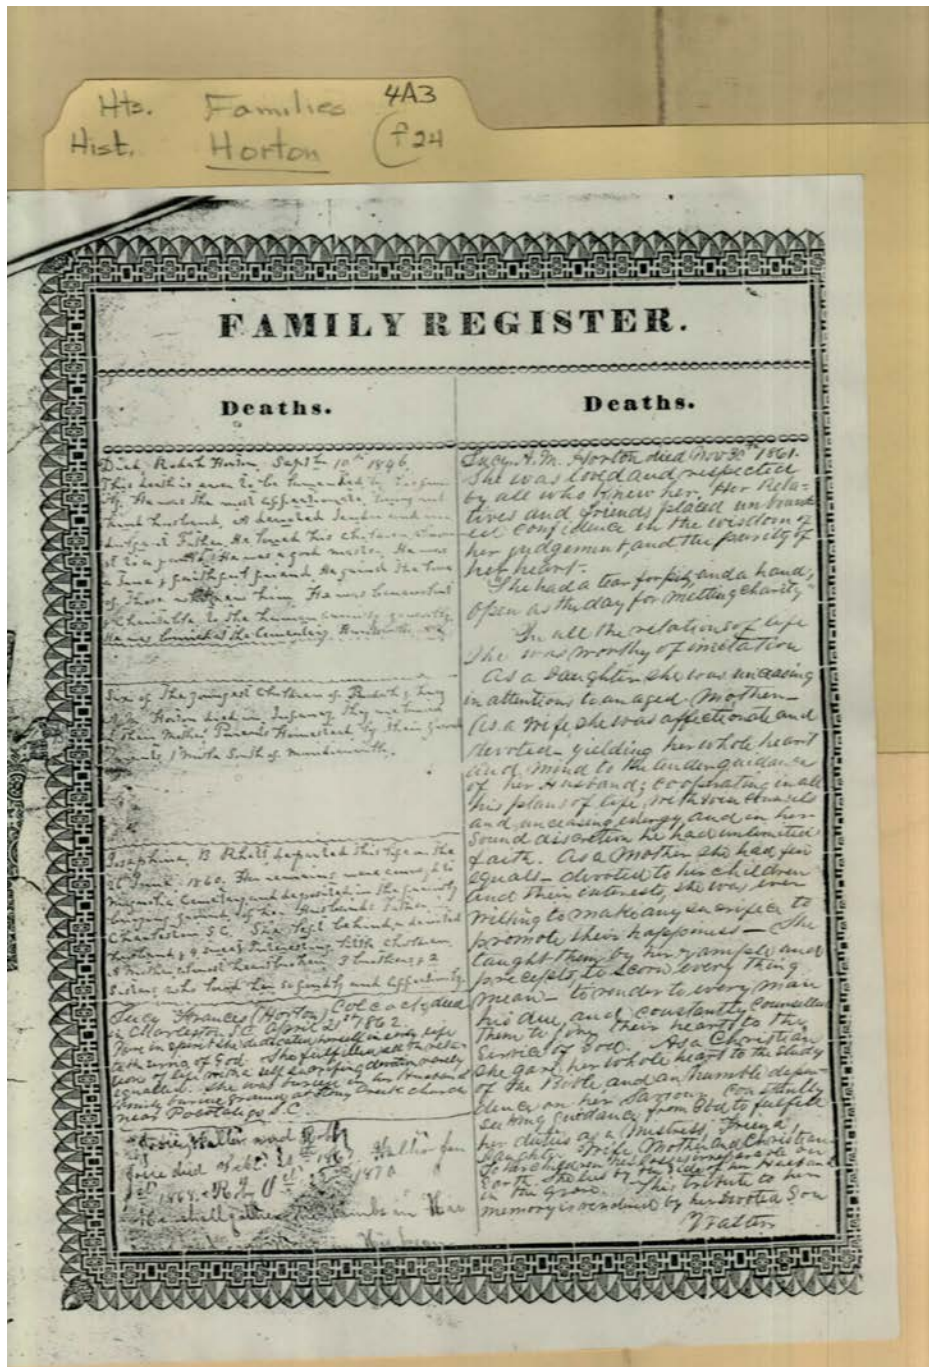 Hts. Families 4A3
Hist. Horton f24
FAMILY REGISTER.
Deaths.
Died, Rodah Horton, Sept 10th 1846
This death is ever to be lamented by
He was the most affectionate, and
kind husband, A devoted and
Father. He loved his children
He was a good master. He was
a true & faithful friend. He gained the love
of those who knew him. He was benevolent
& charitable to the human generally
He was buried at the Cemetery
Six of The youngest children of Rodah & Lucy
Horton died in Infancy They are buried
at their Mother's Parents Homestead by their Grand
Parents,
Josephine B Rhett departed this life on the
26 June 1860. Her remains were conveyed to
Magnolia Cemetery and deposited in the family
burying ground of her Husband's Father
Charleston S.C. She left behind a devoted
husband & 4 sweet interesting little children
A mother almost heartbroken 3 brothers & 2
sisters who loved her and affectionately
Lucy Frances (Horton) Colcock died
in Charleston S.C. April 21st 1862.
Pure in spirit she dedicated herself in early life
to the service of God. She fulfilled all the rela-
tions of life with a self sacrificing devotion rarely
equalled. She was buried in her husband's
family burying ground at Stony Creek church
near Pocotaligo S.C.
Josie, Walter and
Josie died Oct. 1st 1867 Walter Jan
1868. 1870
He shall gather lambs in His
in His bosom
Deaths.
Lucy A. M. Horton died Nov 30th 1861.
She was loved and respected
by all who knew her. Her Rela-
tives and friends placed unbound-
ed confidence in the wisdom of
her judgement, and the purity of
her heart.
"She had a tear for pity, and a hand,
Open as the day for melting charity"
In all the relations of life
She was worthy of imitation
As a Daughter she was unceasing
in attentions to an aged Mother—
As a Wife she was affectionate and
devoted— yielding her whole heart
and mind to the tender guidance
of her Husband; cooperating in all
his plans of life, with wise counsels
and unceasing energy, and in her
sound discretion he had unlimited
faith. As a Mother she had few
equals— devoted to her children
and their interests, she was ever
willing to make any sacrifice to
promote their happiness— She
taught them by her example and
precepts, to scorn every thing
mean— to render to every man
his due, and constantly counselled
them to give their hearts to the
Service of God. As a Christian
She gave her whole heart to the study
of the Bible and an humble depen-
dence on her Saviour, constantly
seeking guidance from God to fulfill
her duties as a Mistress, Friend,
Daughter, Wife, Mother, and Christian.
To her children her loss is irreparable on
Earth. She lies by the side of her Husband
in the grave. This tribute to her
memory is rendered by her devoted Son
Walter